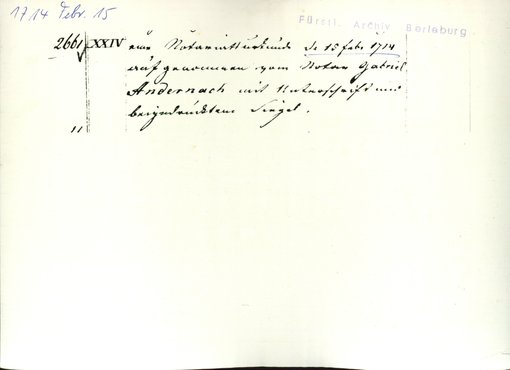 1714 Febr. 15
Fürstl. Archiv Berleburg.
2661 XXIV eine Notariatsurkunde de 15 febr 1714
aufgenommen vom Notar Gabriel
Andernach mit Unterschrift und
beigedrücktem Siegel.
11